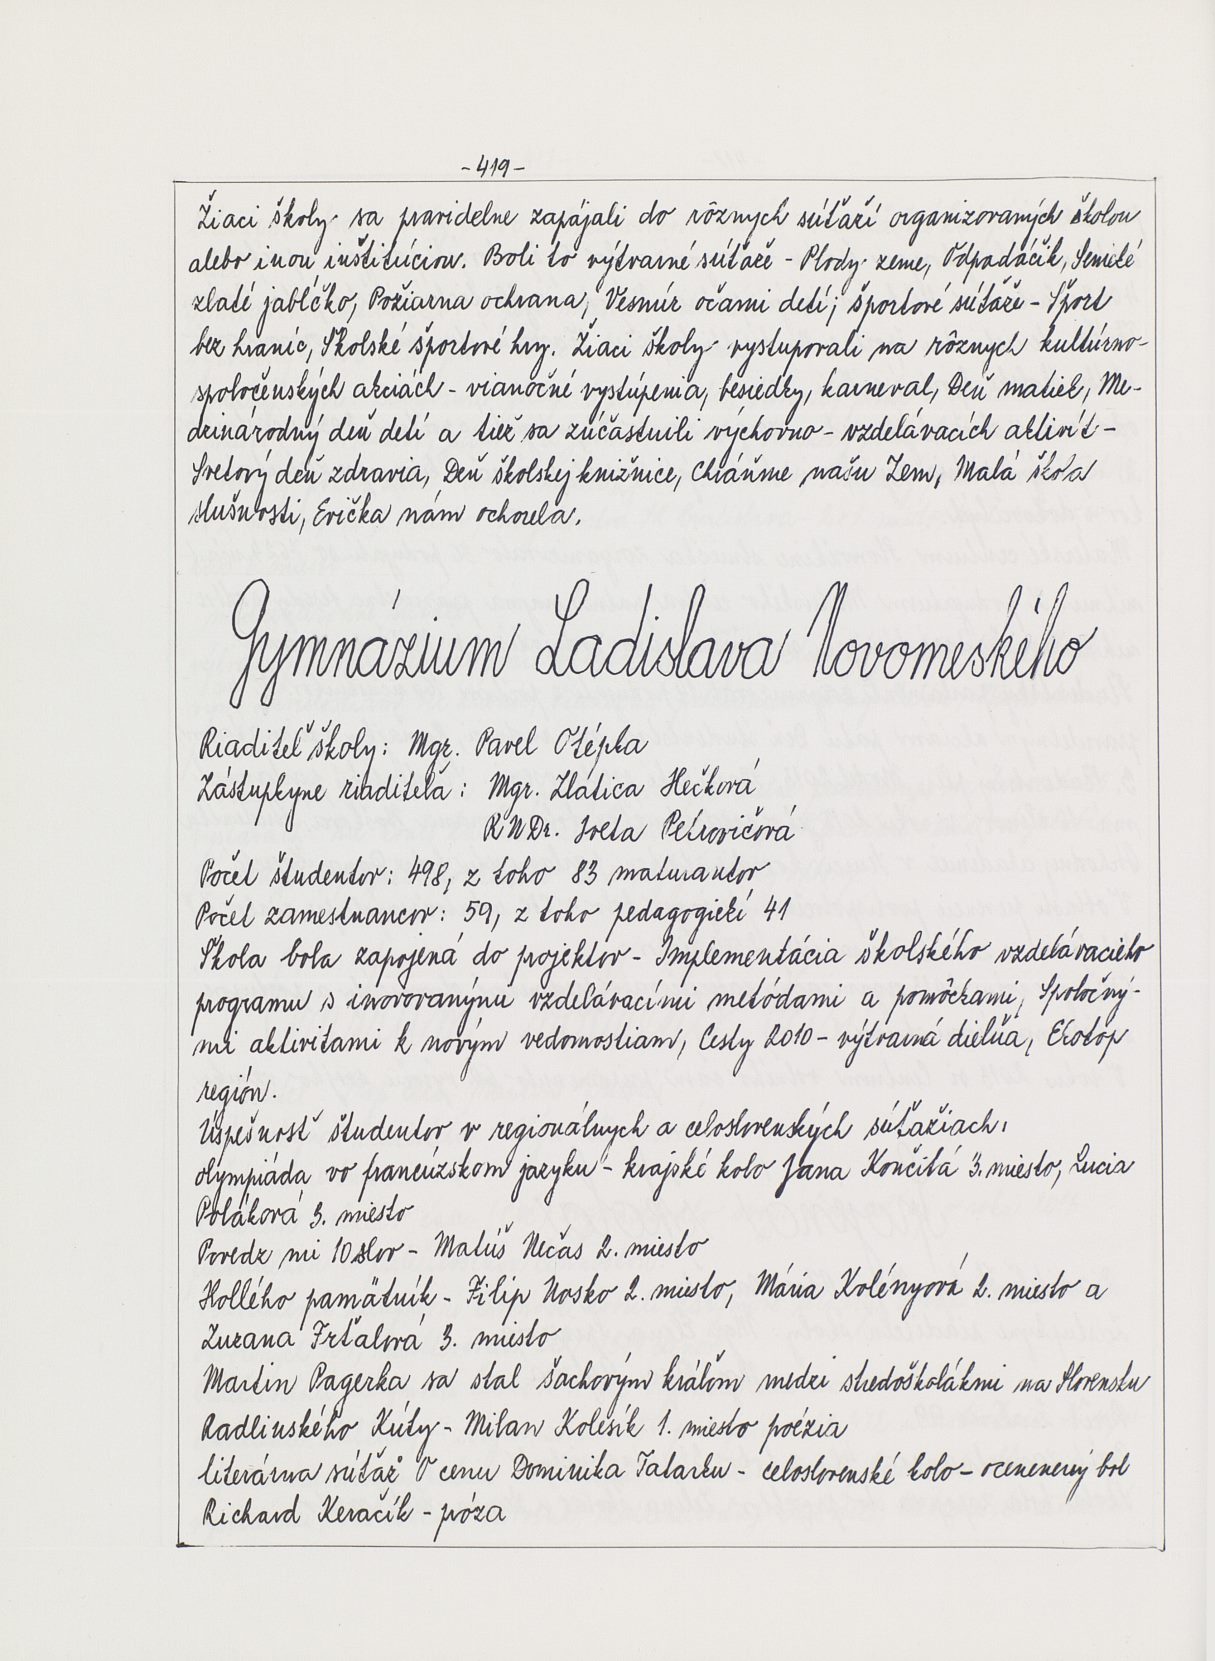 -419-
Žiaci školy sa pravidelne zapájali do rôznych súťaží organizovaných školou
alebo inou inštitúciou. Boli to výtvarné súťaže - Plody zeme, Odpadáčik, Senické
zlaté jabĺčko, Požiarna ochrana, Vesmír očami detí; športové súťaže - Šport
bez hraníc, Školské športové hry. Žiaci školy vystupovali na rôznych kultúrno-
spoločenských akciách - vianočné vystúpenia, besiedky, karneval, Deň matiek, Me-
dzinárodný deň detí a tiež sa zúčastnili výchovno - vzdelávacích aktivít -
Svetový deň zdravia, Deň školskej knižnice, Chráňme našu Zem, Malá škola
slušnosti, Evička nám ochorela.
Gymnázium Ladislava Novomeského
Riaditeľ školy: Mgr. Pavel Otépka
Zástupkyne riaditeľa: Mgr. Zlatica Hečková
RNDr. Iveta Petrovičová
Počet študentov: 498, z toho 83 maturantov
Počet zamestnancov: 59, z toho pedagogickí 41
Škola bola zapojená do projektov - Implementácia školského vzdelávacieho
programu s inovovanými vzdelávacími metódami a pomôckami, Spoločný-
mi aktivitami k novým vedomostiam, Cesty 2010 - výtvarná dielňa, Ekotop
región.
Úspešnosť študentov v regionálnych a celoslovenských súťažiach:
olympiáda vo francúzskom jazyku - krajské kolo Jana Končitá 3. miesto, Lucia
Poláková 3. miesto
Povedz mi 10 slov - Matúš Nečas 2. miesto
Hollého pamätník - Filip Nosko 2. miesto, Mária Kolényová 2. miesto a
Zuzana Frťalová 3. miesto
Martin Pagerka sa stal šachovým kráľom medzi stredoškolákmi na Slovensku
Radlinského Kúty - Milan Kolesík 1. miesto poézia
literárna súťaž O cenu Dominika Tatarku - celoslovenské kolo - ocenenený bol
Richard Keračík - próza